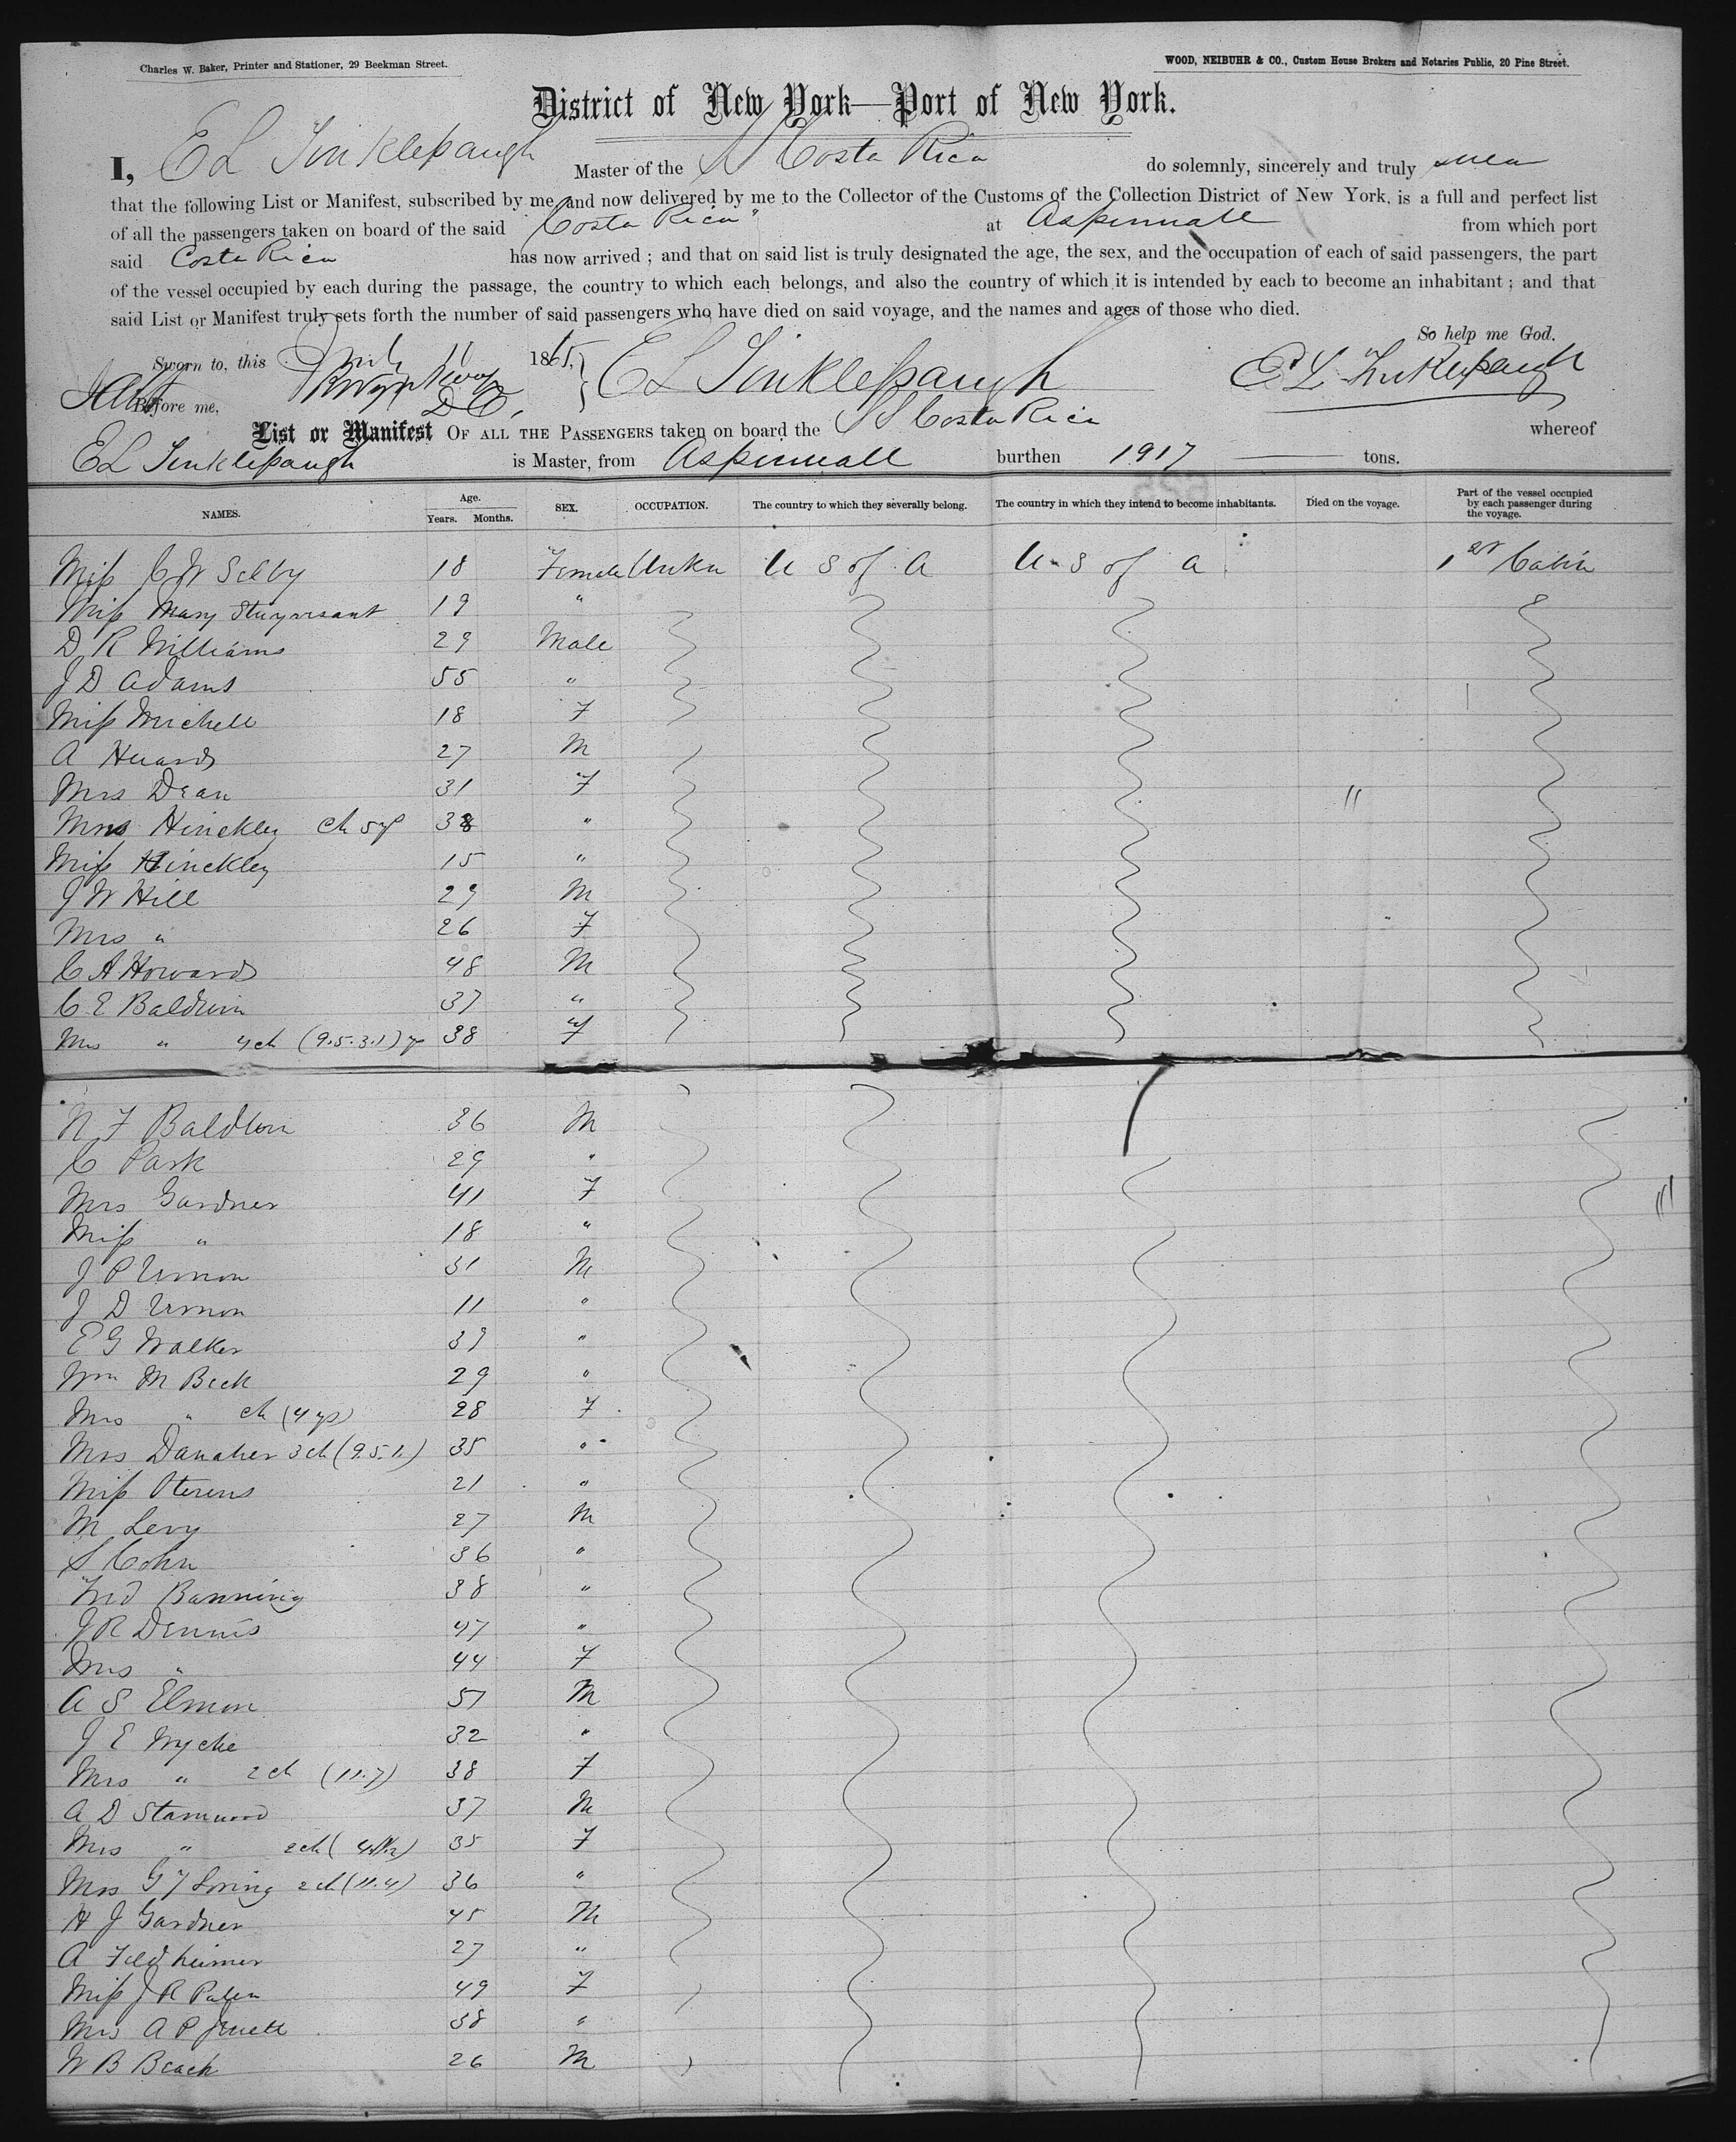 Charles W. Baker, Printer and Stationer, 29 Beekman Street.
WOOD, NEIBUHR & CO., Custom House Brokers and Notaries Public, 20 Pine Street.
District of New York—Port of New York.
I, E L Tinklepaugh Master of the SS Costa Rica do solemnly, sincerely and truly swear
that the following List or Manifest, subscribed by me and now delivered by me to the Collector of the Customs of the Collection District of New York, is a full and perfect list
of all the passengers taken on board of the said "Costa Rica" at Aspinwall from which port
said Costa Rica has now arrived ; and that on said list is truly designated the age, the sex, and the occupation of each of said passengers, the part
of the vessel occupied by each during the passage, the country to which each belongs, and also the country of which it is intended by each to become an inhabitant ; and that
said List or Manifest truly sets forth the number of said passengers who have died on said voyage, and the names and ages of those who died.
So help me God.
Sworn to, this 11 1865, E L Tinklepaugh E L Tinklepaugh
Before me, D C,
List or Manifest OF ALL THE PASSENGERS taken on board the SS Costa Rica whereof
E L Tinklepaugh is Master, from Aspinwall burthen 1917 tons.
NAMES. Age. Years. Months. SEX. OCCUPATION. The country to which they severally belong. The country in which they intend to become inhabitants. Died on the voyage. Part of the vessel occupied by each passenger during the voyage.
Miss C W Selby 18 Female Unkn U S of A U S of A 1st Cabin
Miss Mary Stuyvesant 19 "
D R Williams 29 Male
J D Adams 55 "
Miss Michell 18 F
A Huards 27 M
Mrs Dean 31 F "
Mrs Hinckley ch 5 y 38 "
Miss Hinckley 15 "
J W Hill 29 M
Mrs " 26 F
C A Howards 48 M
C E Baldwin 37 "
Mrs " 4 ch (9.5.3.1) y 38 F
N F Baldwin 36 M
C Park 29 "
Mrs Gardner 41 F
Miss " 18 "
J P Vernon 31 M
J D Vernon 11 "
E G Walker 39 "
Wm M Beck 29 "
Mrs " ch (4 ys) 28 F
Mrs Danaher 3 ch (9.5.1.) 35 "
Miss 21 "
M Levy 27 M
S Cohn 36 "
Fred Banning 38 "
J R Dennis 47 "
Mrs " 44 F
A S Elmon 51 M
J E Wyche 32 "
Mrs " 2 ch (11.7) 38 F
A D Stanwood 37 M
Mrs " 2 ch 35 F
Mrs G F Loring 2 ch (11.4) 36 "
H J Gardner 45 M
A Feldheimer 27 "
Miss J R Palen 49 F
Mrs A P Jewett 38 "
W B Beach 26 M